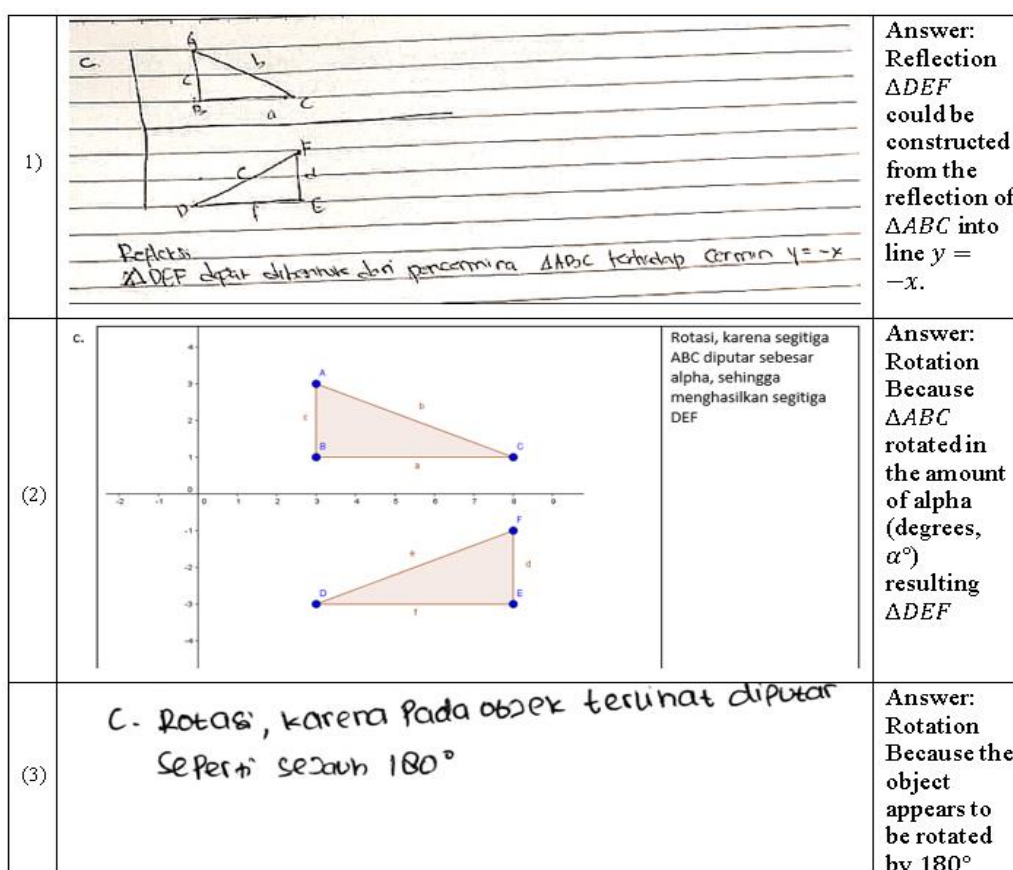 1)
C.
A
b
c
B
a
C
F
e
d
D
f
E
Refleksi
ΔDEF dapat dibentuk dari pencermina ΔABC terhadap cermin y = -x
Answer:
Reflection
ΔDEF
could be
constructed
from the
reflection of
ΔABC into
line y =
−x.
(2)
c.
4
3
2
1
0
-2 -1 0 1 2 3 4 5 6 7 8 9
-1
-2
-3
-4
A
b
c
B
C
a
F
e
d
D
E
f
Rotasi, karena segitiga
ABC diputar sebesar
alpha, sehingga
menghasilkan segitiga
DEF
Answer:
Rotation
Because
ΔABC
rotated in
the amount
of alpha
(degrees,
α°)
resulting
ΔDEF
(3)
C. Rotasi, karena Pada objek terlihat diputar
seperti sejauh 180°
Answer:
Rotation
Because the
object
appears to
be rotated
by 180°